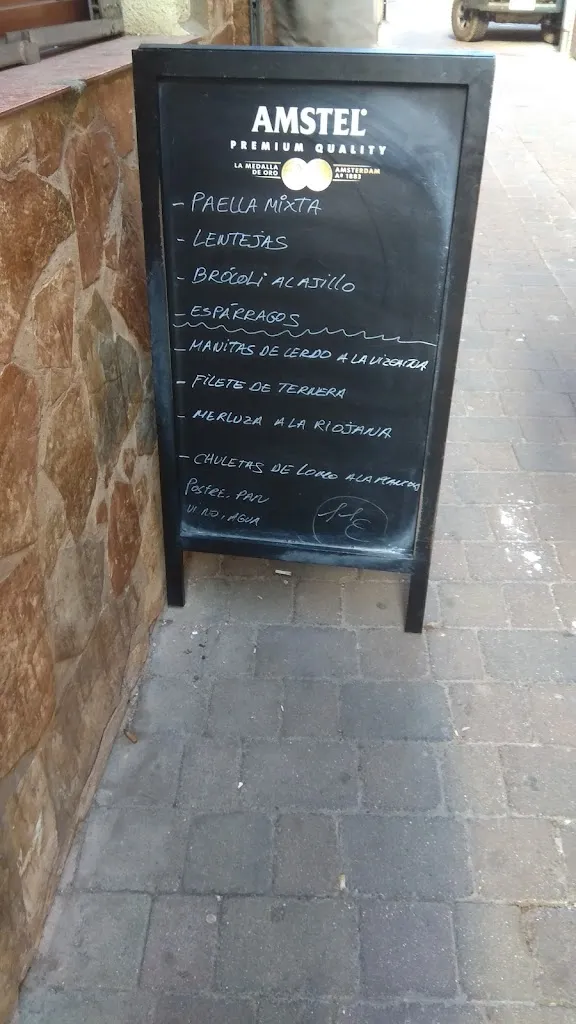 AMSTEL
PREMIUM QUALITY
LA MEDALLA DE ORO
AMSTERDAM Aº 1883
- PAELLA MIXTA
- LENTEJAS
- BRÓCOLI AL AJILLO
- ESPÁRRAGOS
- MANITAS DE CERDO A LA VIZCAINA
- FILETE DE TERNERA
- MERLUZA A LA RIOJANA
- CHULETAS DE LOMO A LA
POSTRE. PAN
VINO, AGUA
11€